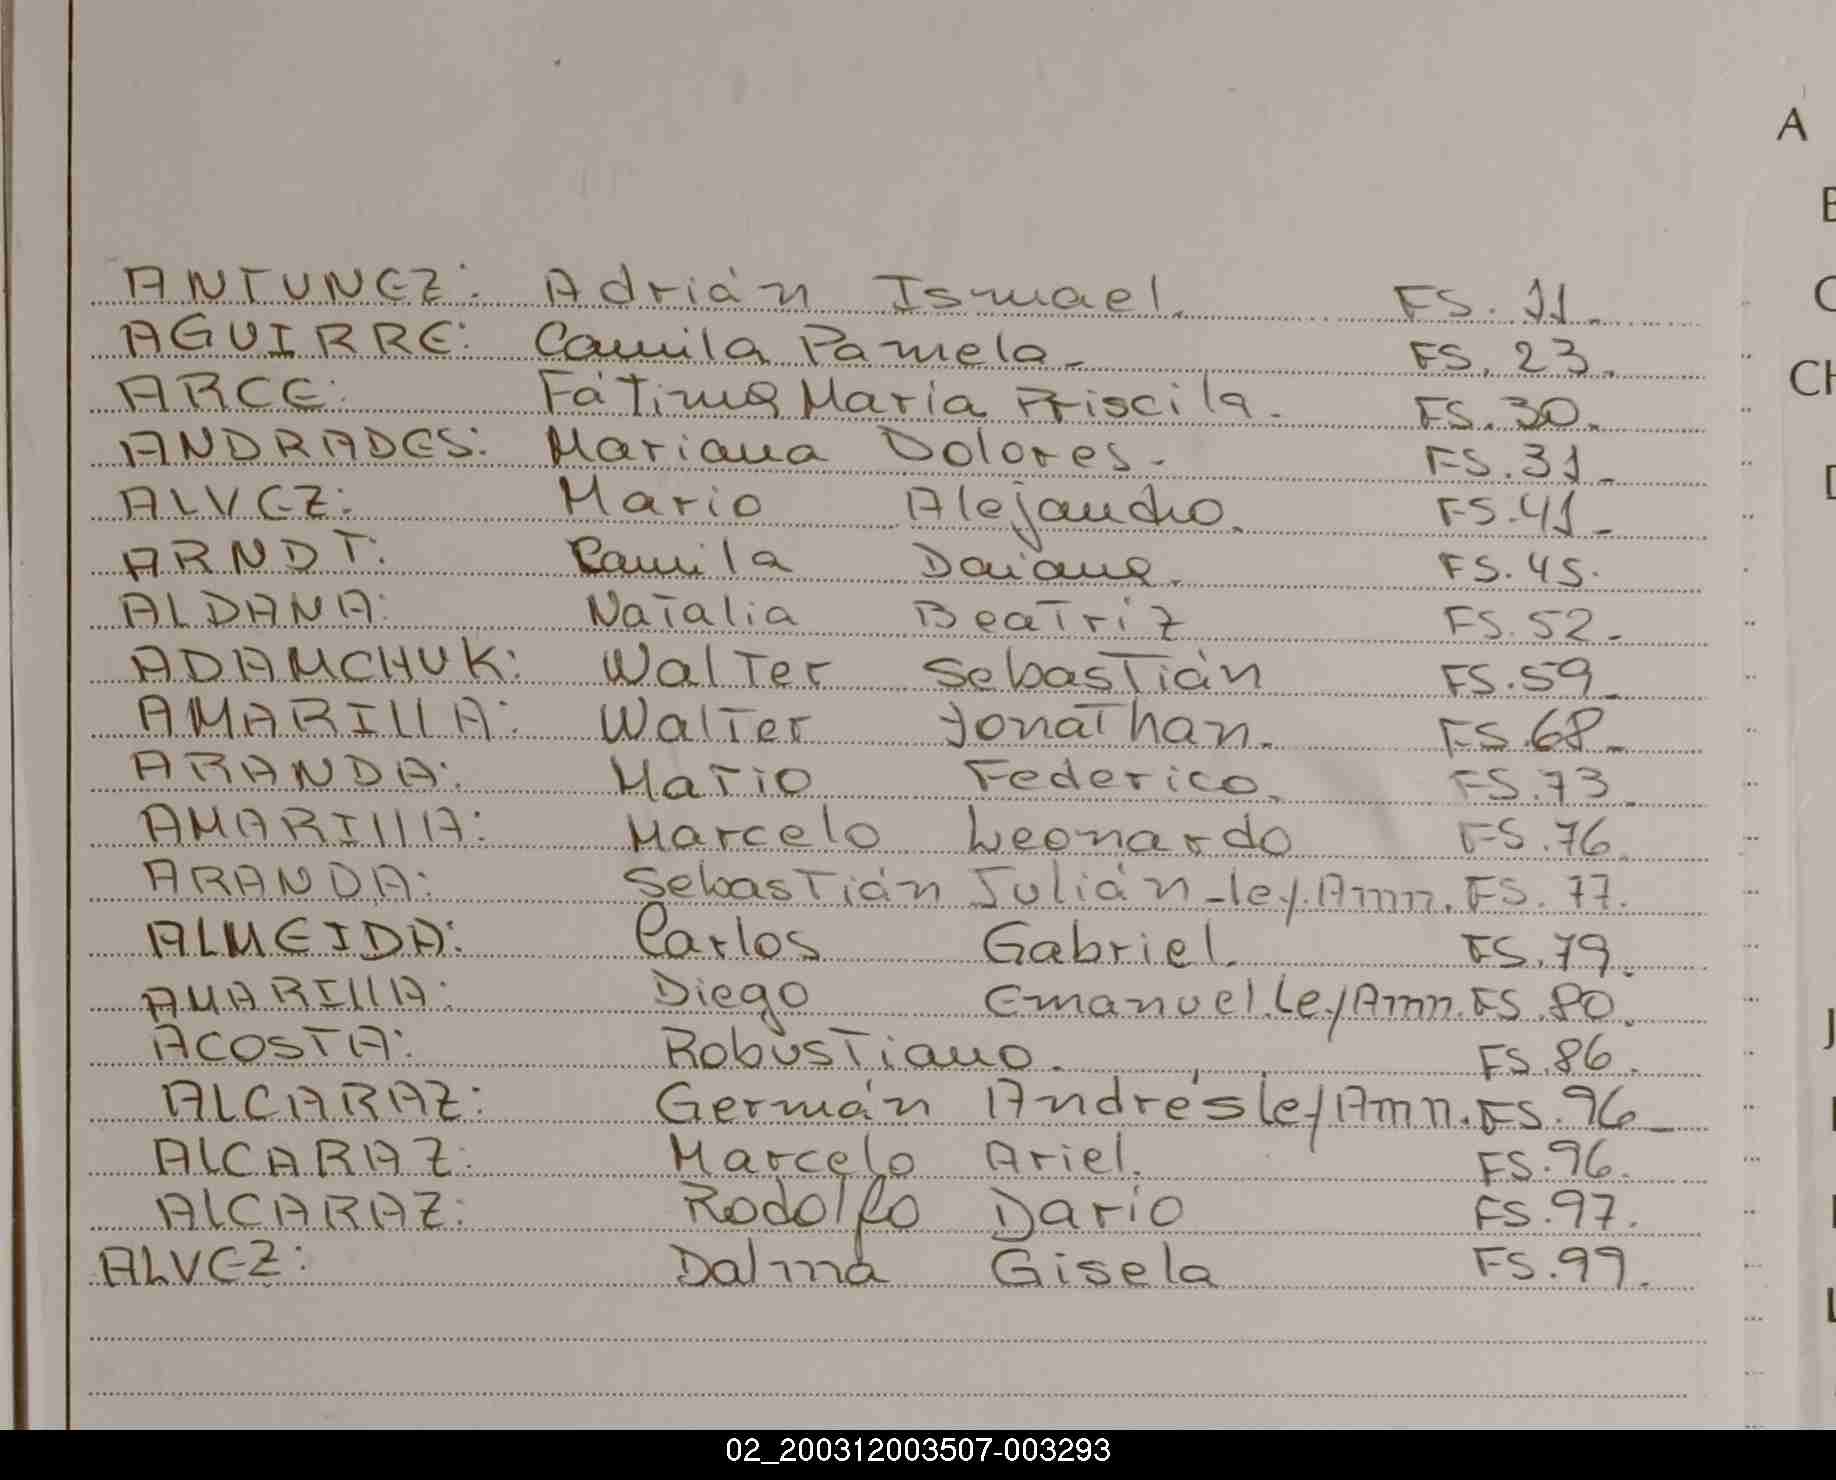 ANTUNEZ: Adrián Ismael. FS. 11.
AGUIRRE: Camila Pamela. FS. 23.
ARCE: Fátima María Priscila. FS. 30.
ANDRADES: Mariana Dolores. FS. 31.
ALVEZ: Mario Alejandro. FS. 41.
ARNDT: Camila Daiana. FS. 45.
ALDANA: Natalia Beatriz FS. 52.
ADAMCHUK: Walter Sebastián FS. 59.
AMARILLA: Walter Jonathan. FS. 68.
ARANDA: Mario Federico. FS. 73.
AMARILLA: Marcelo Leonardo FS. 76.
ARANDA: Sebastián Julián - Ley. Amn. FS. 77.
ALMEIDA: Carlos Gabriel. FS. 79.
AMARILLA: Diego Emanuel. Ley Amn. FS. 80.
ACOSTA: Robustiano. FS. 86.
ALCARAZ: Germán Andrés Ley Amn. FS. 96
ALCARAZ: Marcelo Ariel. FS. 96.
ALCARAZ: Rodolfo Dario FS. 97.
ALVEZ: Dalma Gisela FS. 99.
A
B
C
CH
D
J
L
02_200312003507-003293